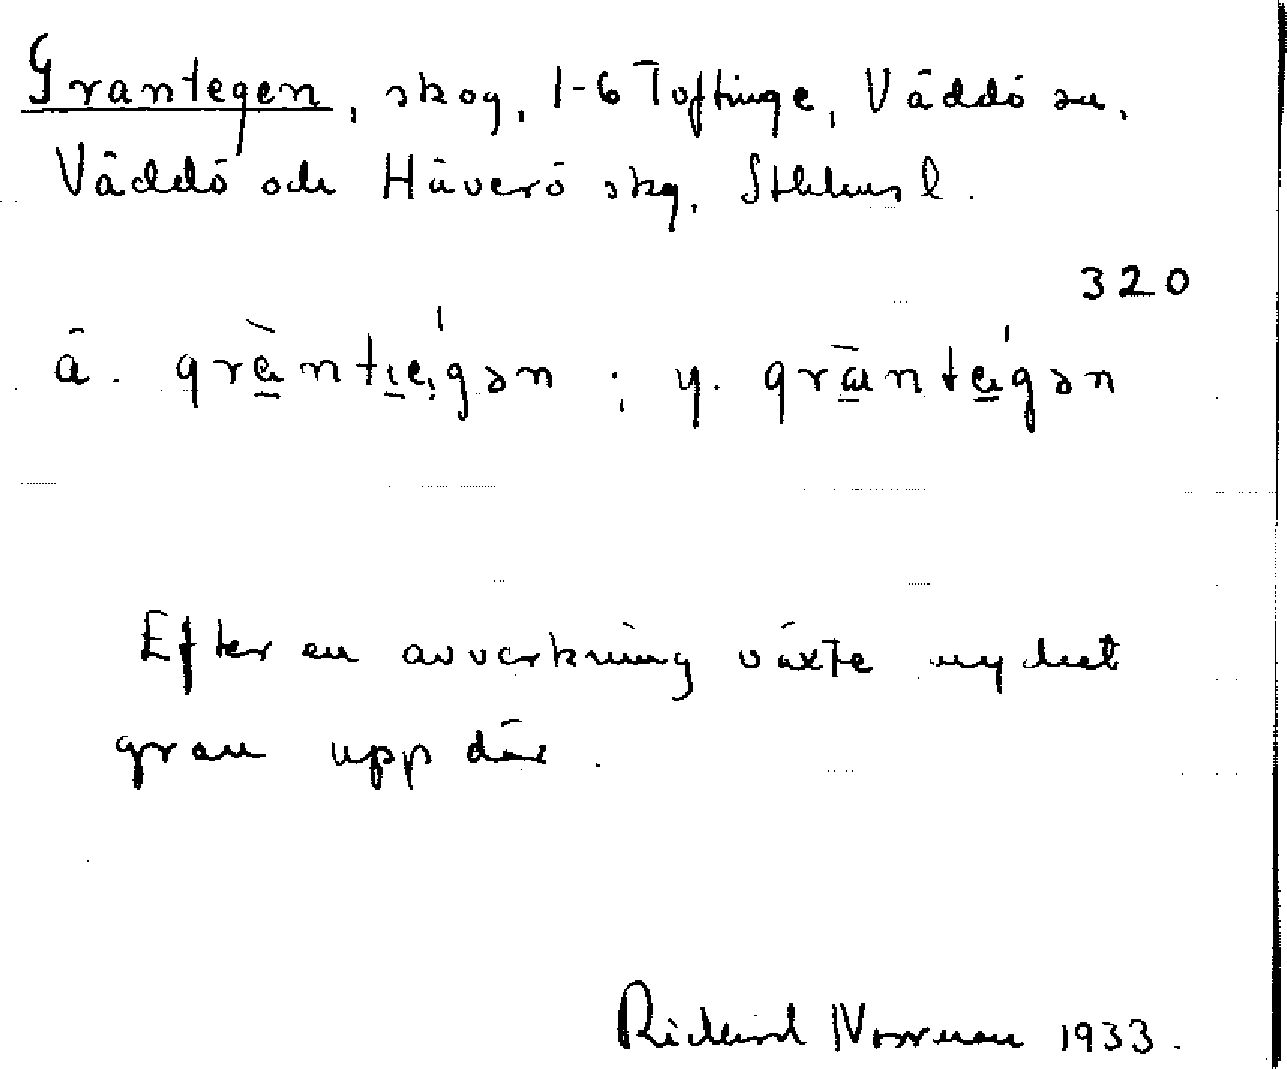 Grantegen, skog, 1-6 Toftinge, Väddö sn,
Väddö och Häverö skg, Sthlms l.
320
ä. gràntıe̩gən ; y. gràntegən
Efter en avverkning växte mycket
gran upp där.
Rickard Norrman 1933.